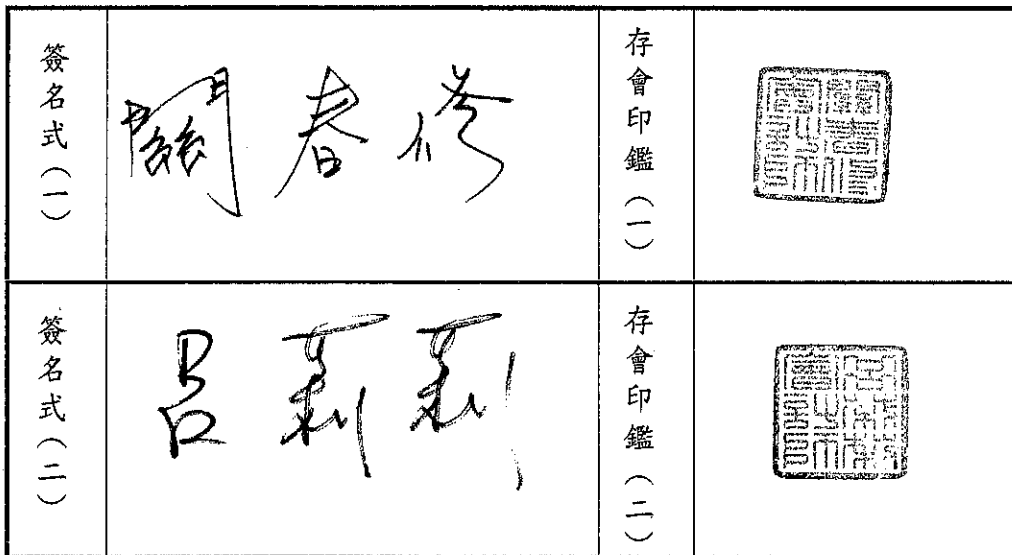 簽名式（一）
關春修
存會印鑑（一）
簽名式（二）
呂莉莉
存會印鑑（二）